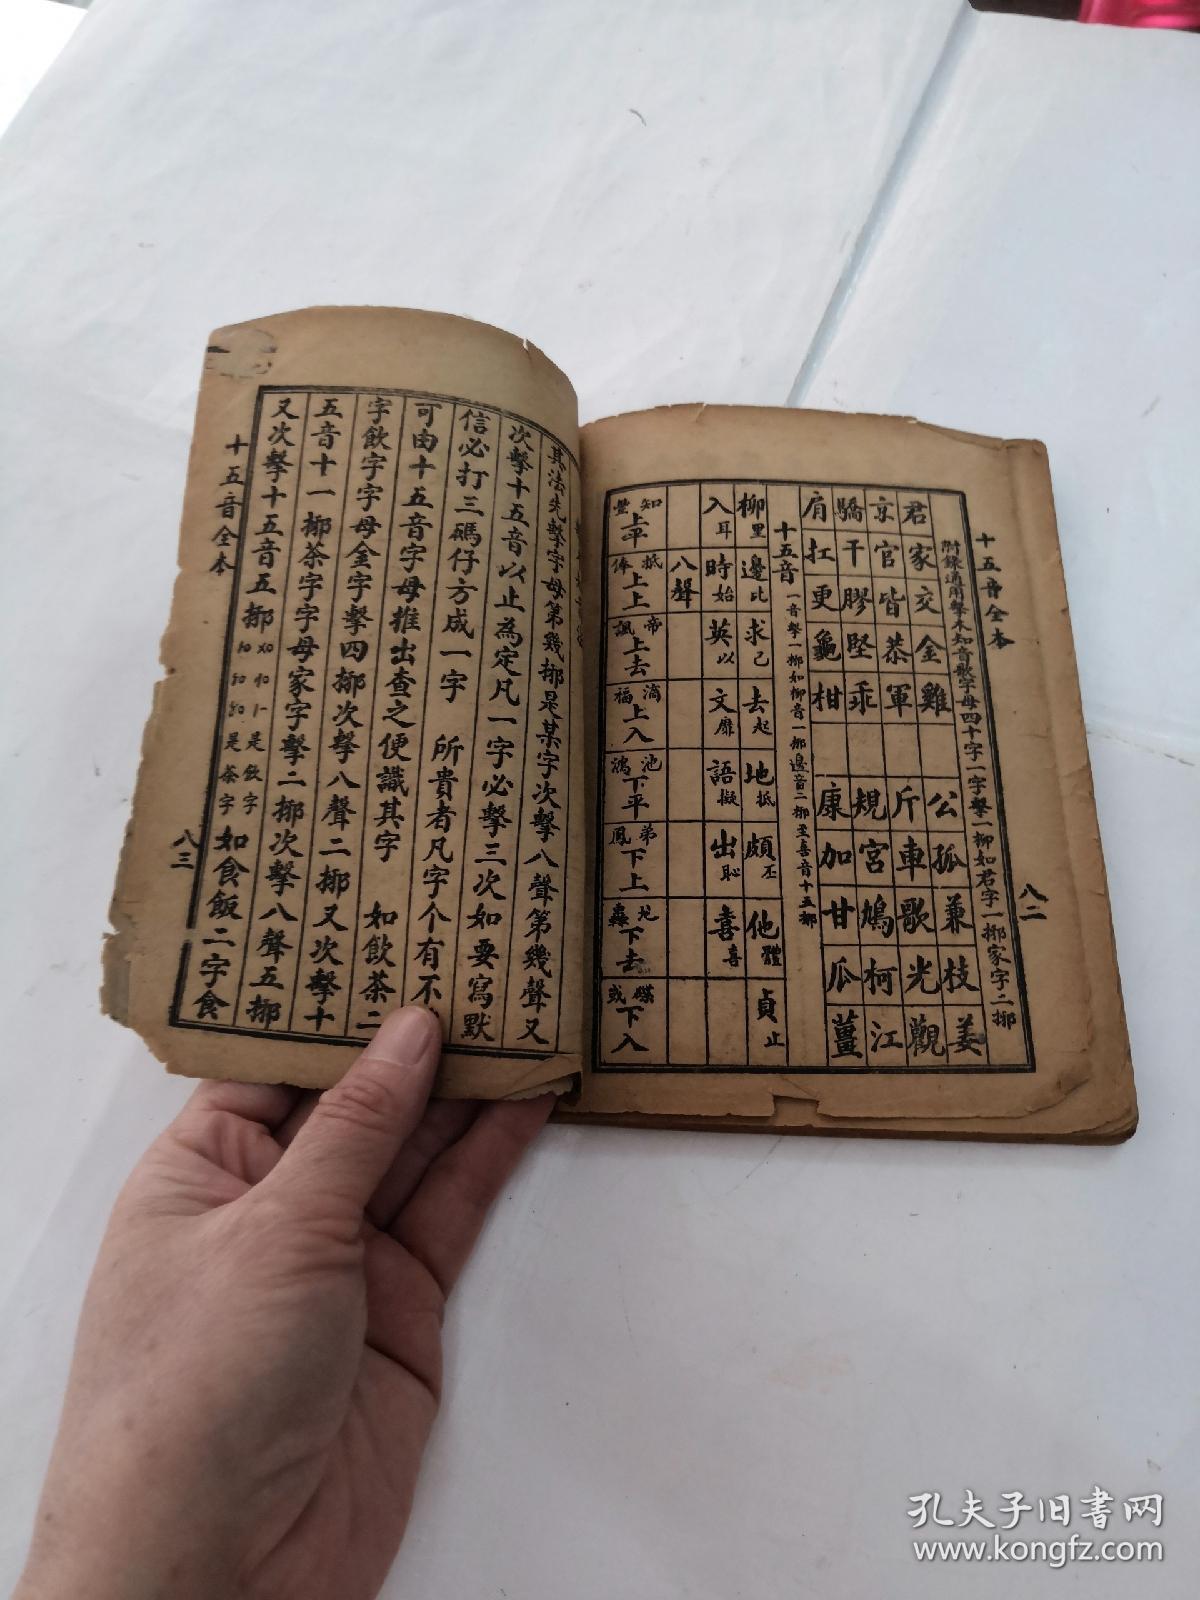 十五音全本
八二
附錄通用擊木知音歌字母四十字一字擊一挪如君字一挪家字二挪
君家交金雞 公孤兼枝姜
京官皆恭軍 斤車歌光觀
驕干膠堅乖 規宮鳩柯江
肩扛更龜柑 康加甘瓜薑
十五音 一音擊一挪如柳音一挪邊音二挪至喜音十五挪
柳里 邊比 求己 去起 地抵 頗丕 他體 貞止
入耳 時始 英以 文靡 語擬 出恥 喜喜
八聲
知 上平
抵 上上
帝諷 上去
滴福 上入
池 下平
弟鳳 下上
下去
或 下入
其法先擊字母第幾挪是某字次擊八聲第幾聲又
次擊十五音以止為定凡一字必擊三次如要寫默
信必打三碼仔方成一字 所貴者凡字个有不
可由十五音字母推出查之便識其字 如飲茶二
字飲字字母金字擊四挪次擊八聲二挪又次擊十
五音十一挪茶字字母家字擊二挪次擊八聲五挪
又次擊十五音五挪 是飲字 是茶字 如食飯二字食
十五音全本
八三
孔夫子旧书网
www.kongfz.com